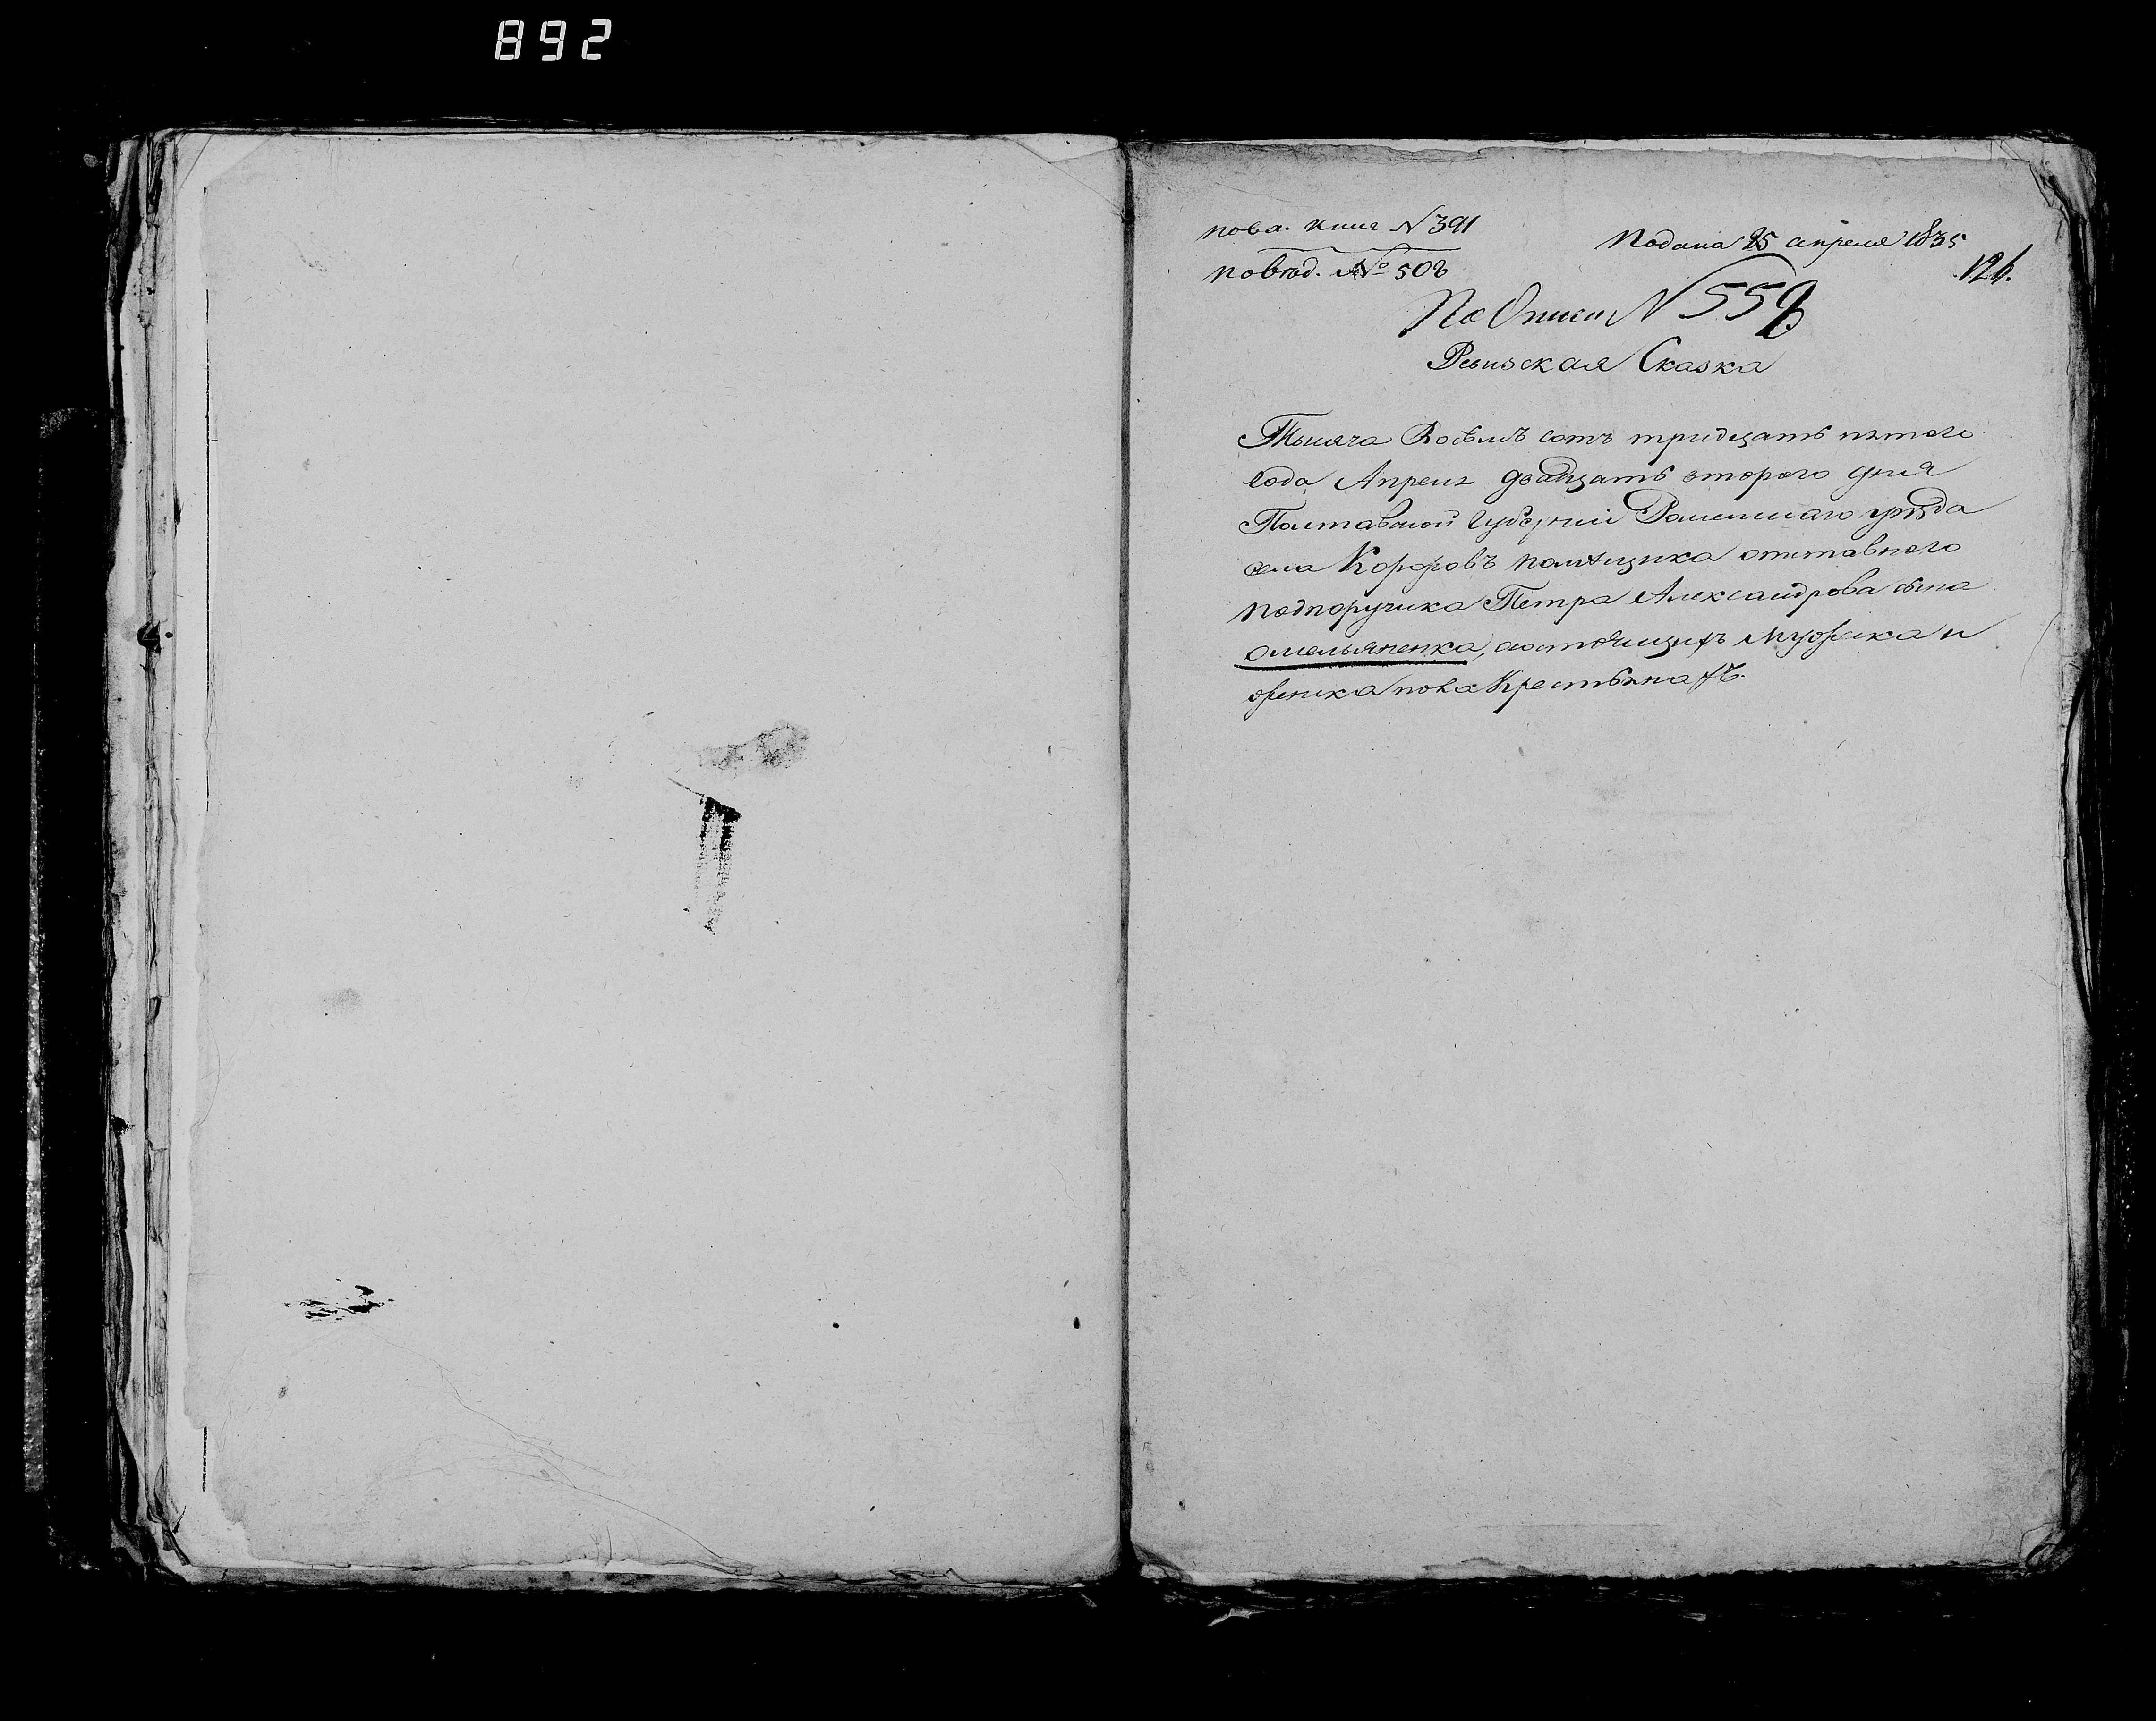 892
по ва. книг N 391
Подана 25 апреля 1835
по вѣд. № 508
126.
По Описи N 559
Ревизская Сказка
Тысяча Восемъ сотъ тридцать пятого
года Апреля двадцать второго дня
Полтавской Губернии Роменскаго уѣзда
села помѣщика отставного
подпоручика Петра Александрова сына
Омельяненка, состоящихъ мужеска и
женска пола Крестьянахъ.